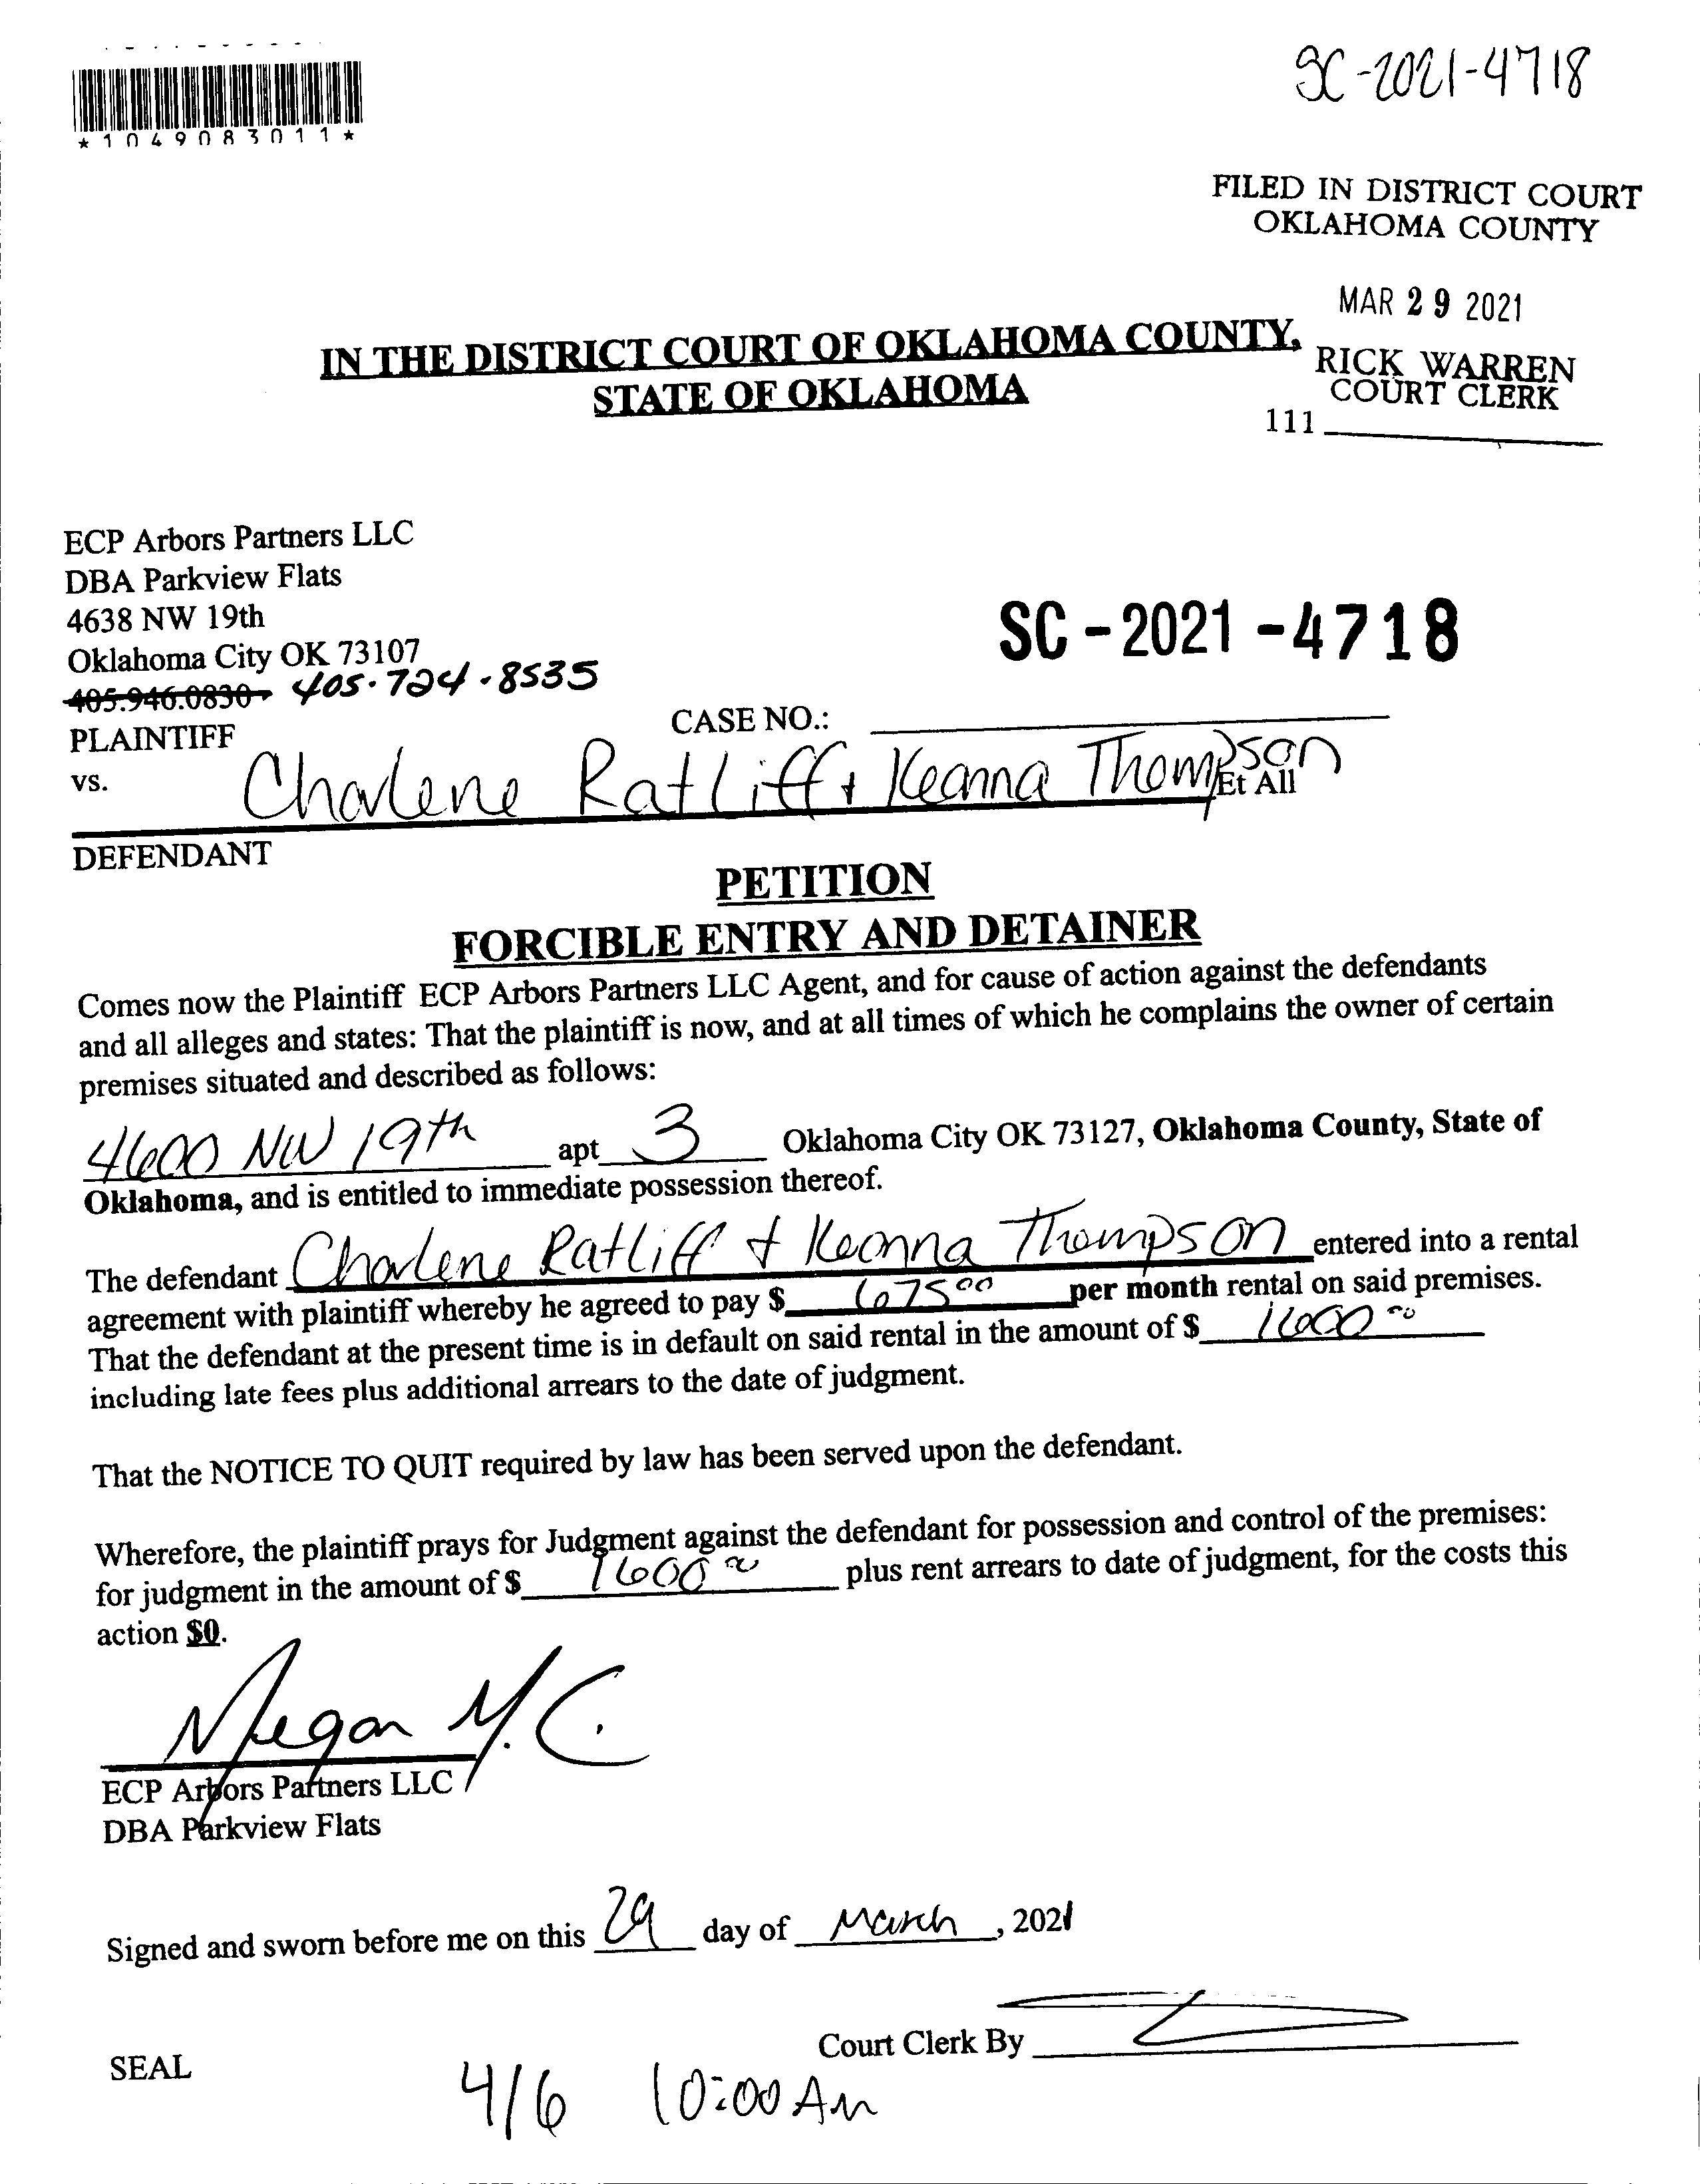 SC-2021-4718
*1049083011*
FILED IN DISTRICT COURT
OKLAHOMA COUNTY
MAR 29 2021
IN THE DISTRICT COURT OF OKLAHOMA COUNTY,
STATE OF OKLAHOMA
RICK WARREN
COURT CLERK
111
ECP Arbors Partners LLC
DBA Parkview Flats
4638 NW 19th
Oklahoma City OK 73107
405.946.0830 405.724.8535
SC-2021-4718
PLAINTIFF
CASE NO.:
vs. Charlene Ratliff + Keanna Thompson Et All
DEFENDANT
PETITION
FORCIBLE ENTRY AND DETAINER
Comes now the Plaintiff ECP Arbors Partners LLC Agent, and for cause of action against the defendants
and all alleges and states: That the plaintiff is now, and at all times of which he complains the owner of certain
premises situated and described as follows:
4600 NW 19th apt 3 Oklahoma City OK 73127, Oklahoma County, State of
Oklahoma, and is entitled to immediate possession thereof.
The defendant Charlene Ratliff + Keanna Thompson entered into a rental
agreement with plaintiff whereby he agreed to pay $ 675 00 per month rental on said premises.
That the defendant at the present time is in default on said rental in the amount of $ 1600 00
including late fees plus additional arrears to the date of judgment.
That the NOTICE TO QUIT required by law has been served upon the defendant.
Wherefore, the plaintiff prays for Judgment against the defendant for possession and control of the premises:
for judgment in the amount of $ 1600 00 plus rent arrears to date of judgment, for the costs this
action $0.
Megan M. C.
ECP Arbors Partners LLC
DBA Parkview Flats
Signed and sworn before me on this 29 day of March, 2021
Court Clerk By
SEAL
4/6 10:00 Am